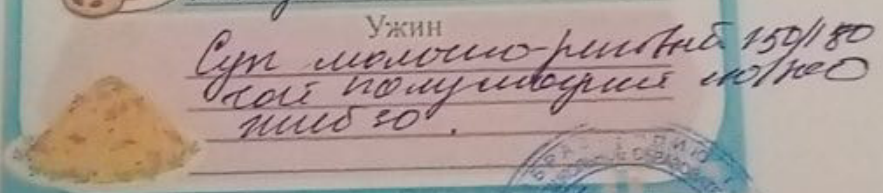 Ужин
Суп молочно-рисовый 150/180
чай полусладкий
хлеб 30.